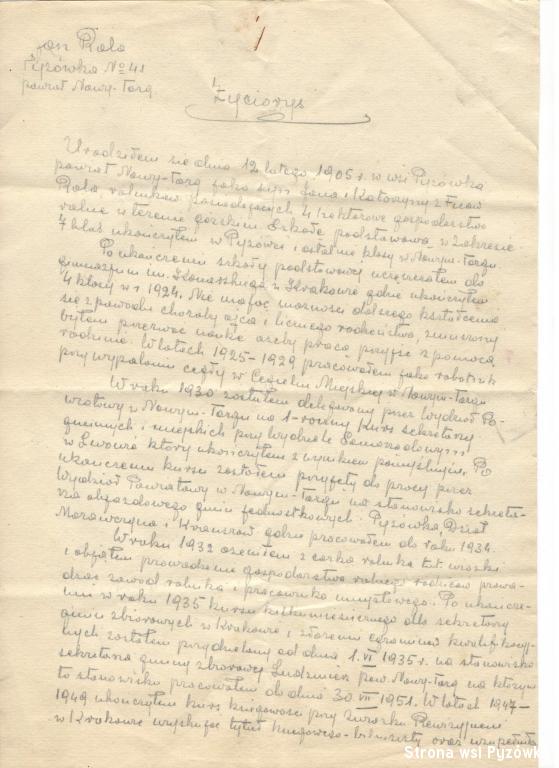 Jan Rola
Pyzówka No 41
powiat Nowy-Targ
Życiorys
Urodziłem się dnia 12 lutego 1905 r. w wsi Pyzówka
powiat Nowy-Targ jako syn Jana i Katarzyny z
Rola, rolników posiadających 4 hektarowe gospodarstwo
rolne w terenie górskim. Szkołę podstawową w zakresie
7 klas ukończyłem w Pyzówce i ostatnie klasy w Nowym-Targu.
Po ukończeniu szkoły podstawowej uczęszczałem do
gimnazjum im. w Krakowie gdzie ukończyłem
4 klasy w r. 1924. Nie mając możności dalszego kształcenia
się z powodu choroby ojca i licznego rodzeństwa, zmuszony
byłem przerwać naukę ażeby pracą przyjść z pomocą
rodzinie. W latach 1925-1929 pracowałem jako robotnik
przy wypalaniu cegły w Cegielni Miejskiej w Nowym-Targu
W roku 1930 zostałem delegowany przez Wydział Po-
wiatowy w Nowym-Targu na 1-roczny kurs sekretarzy
gminnych i miejskich przy Wydziale Samorządowym
w Lwowie który ukończyłem z wynikiem pomyślnym. Po
ukończeniu kursu zostałem przyjęty do pracy przez
Wydział Powiatowy w Nowym-Targu na stanowisko sekreta-
rza objazdowego gmin jednostkowych: Pyzówka, Dział
Morawczyna i Krauszów gdzie pracowałem do roku 1934.
W roku 1932 ożeniłem z córką rolnika t.t. wioski
i objąłem prowadzenie gospodarstwa rolnego rodziców prowa-
dząc zawód rolnika i pracownika umysłowego. Po ukończe-
niu w roku 1935 kursu kilkumiesięcznego dla sekretarzy
gmin zbiorowych w Krakowie i złożeniu egzaminów kwalifikacyj-
nych zostałem przydzielony od dnia 1.VI 1935 r. na stanowisko
sekretarza gminy zbiorowej Ludźmierz pow. Nowy-Targ na którym
to stanowisku pracowałem do dnia 30 VII 1951. W latach 1947-
1949 ukończyłem kurs księgowości przy Związku Rewizyjnym
w Krakowie uzyskując tytuł księgowego-bilansisty oraz
Strona wsi Pyzówk